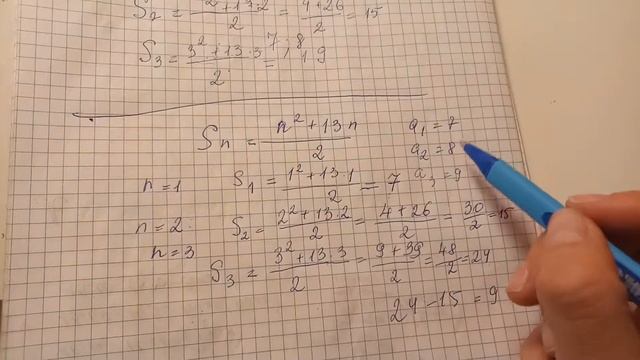 S₂ = 2² + 13·2 / 2 = 4+26 / 2 = 15
S₃ = 3² + 13·3 / 2 = 7; 8; 9
Sn = n² + 13n / 2
a₁ = 7
a₂ = 8
a₃ = 9
n = 1 S₁ = 1² + 13·1 / 2 = 7
n = 2. S₂ = 2² + 13·2 / 2 = 4 + 26 / 2 = 30 / 2 = 15
n = 3 S₃ = 3² + 13·3 / 2 = 9 + 39 / 2 = 48 / 2 = 24
24 - 15 = 9